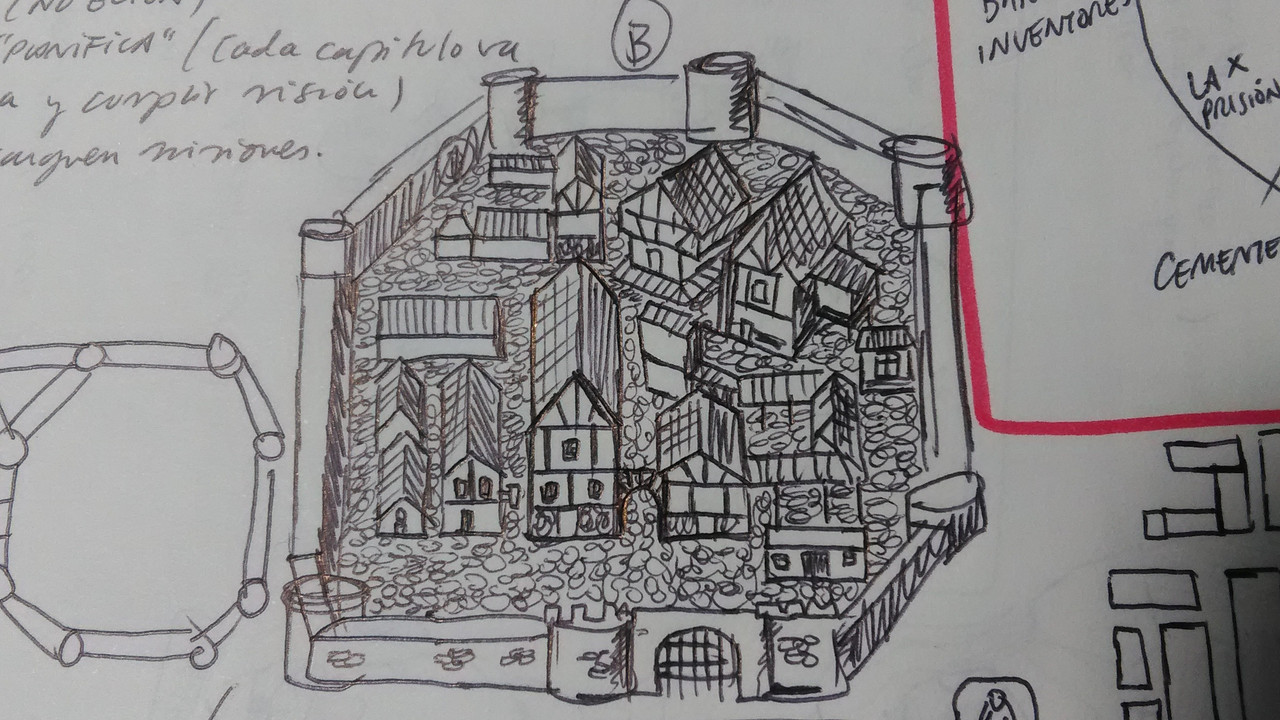 "PLANIFICA" (Cada capítulo va
a y cumplir misión)
misiones.
B
INVENTORES
LA X
PRISIÓN
CEMENTE